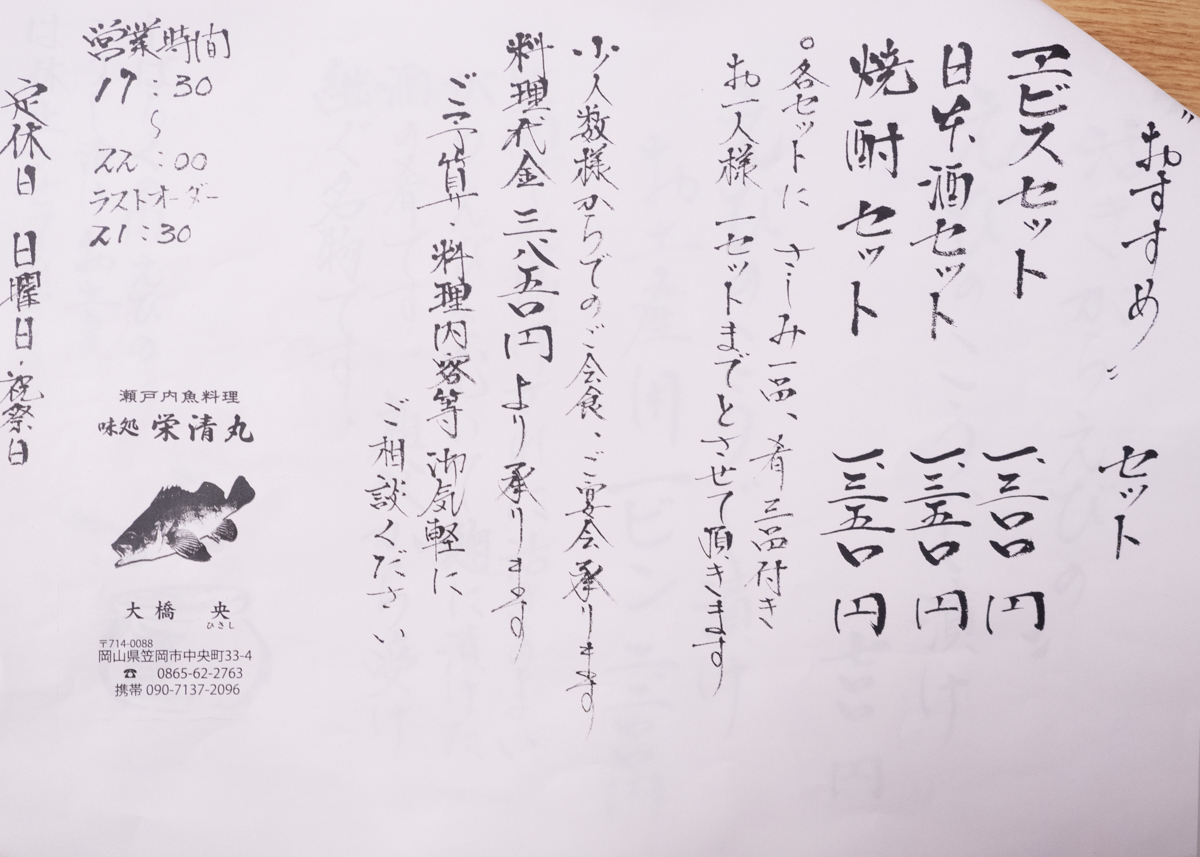 "おすすめ" セット
ヱビスセット 一、三〇〇円
日本酒セット 一、三五〇円
焼酎セット 一、三五〇円
○各セットに さしみ一品、肴三品付き
お一人様 一セットまでとさせて頂きます
少人数様からでのご会食、ご宴会承ります
料理代金 三八五〇円より承ります
ご予算・料理内容等御気軽に
ご相談ください
営業時間
17:30
〜
22:00
ラストオーダー
21:30
定休日 日曜日・祝祭日
瀬戸内魚料理
味処 栄清丸
大橋 央
ひさし
〒714-0088
岡山県笠岡市中央町33-4
☎ 0865-62-2763
携帯 090-7137-2096